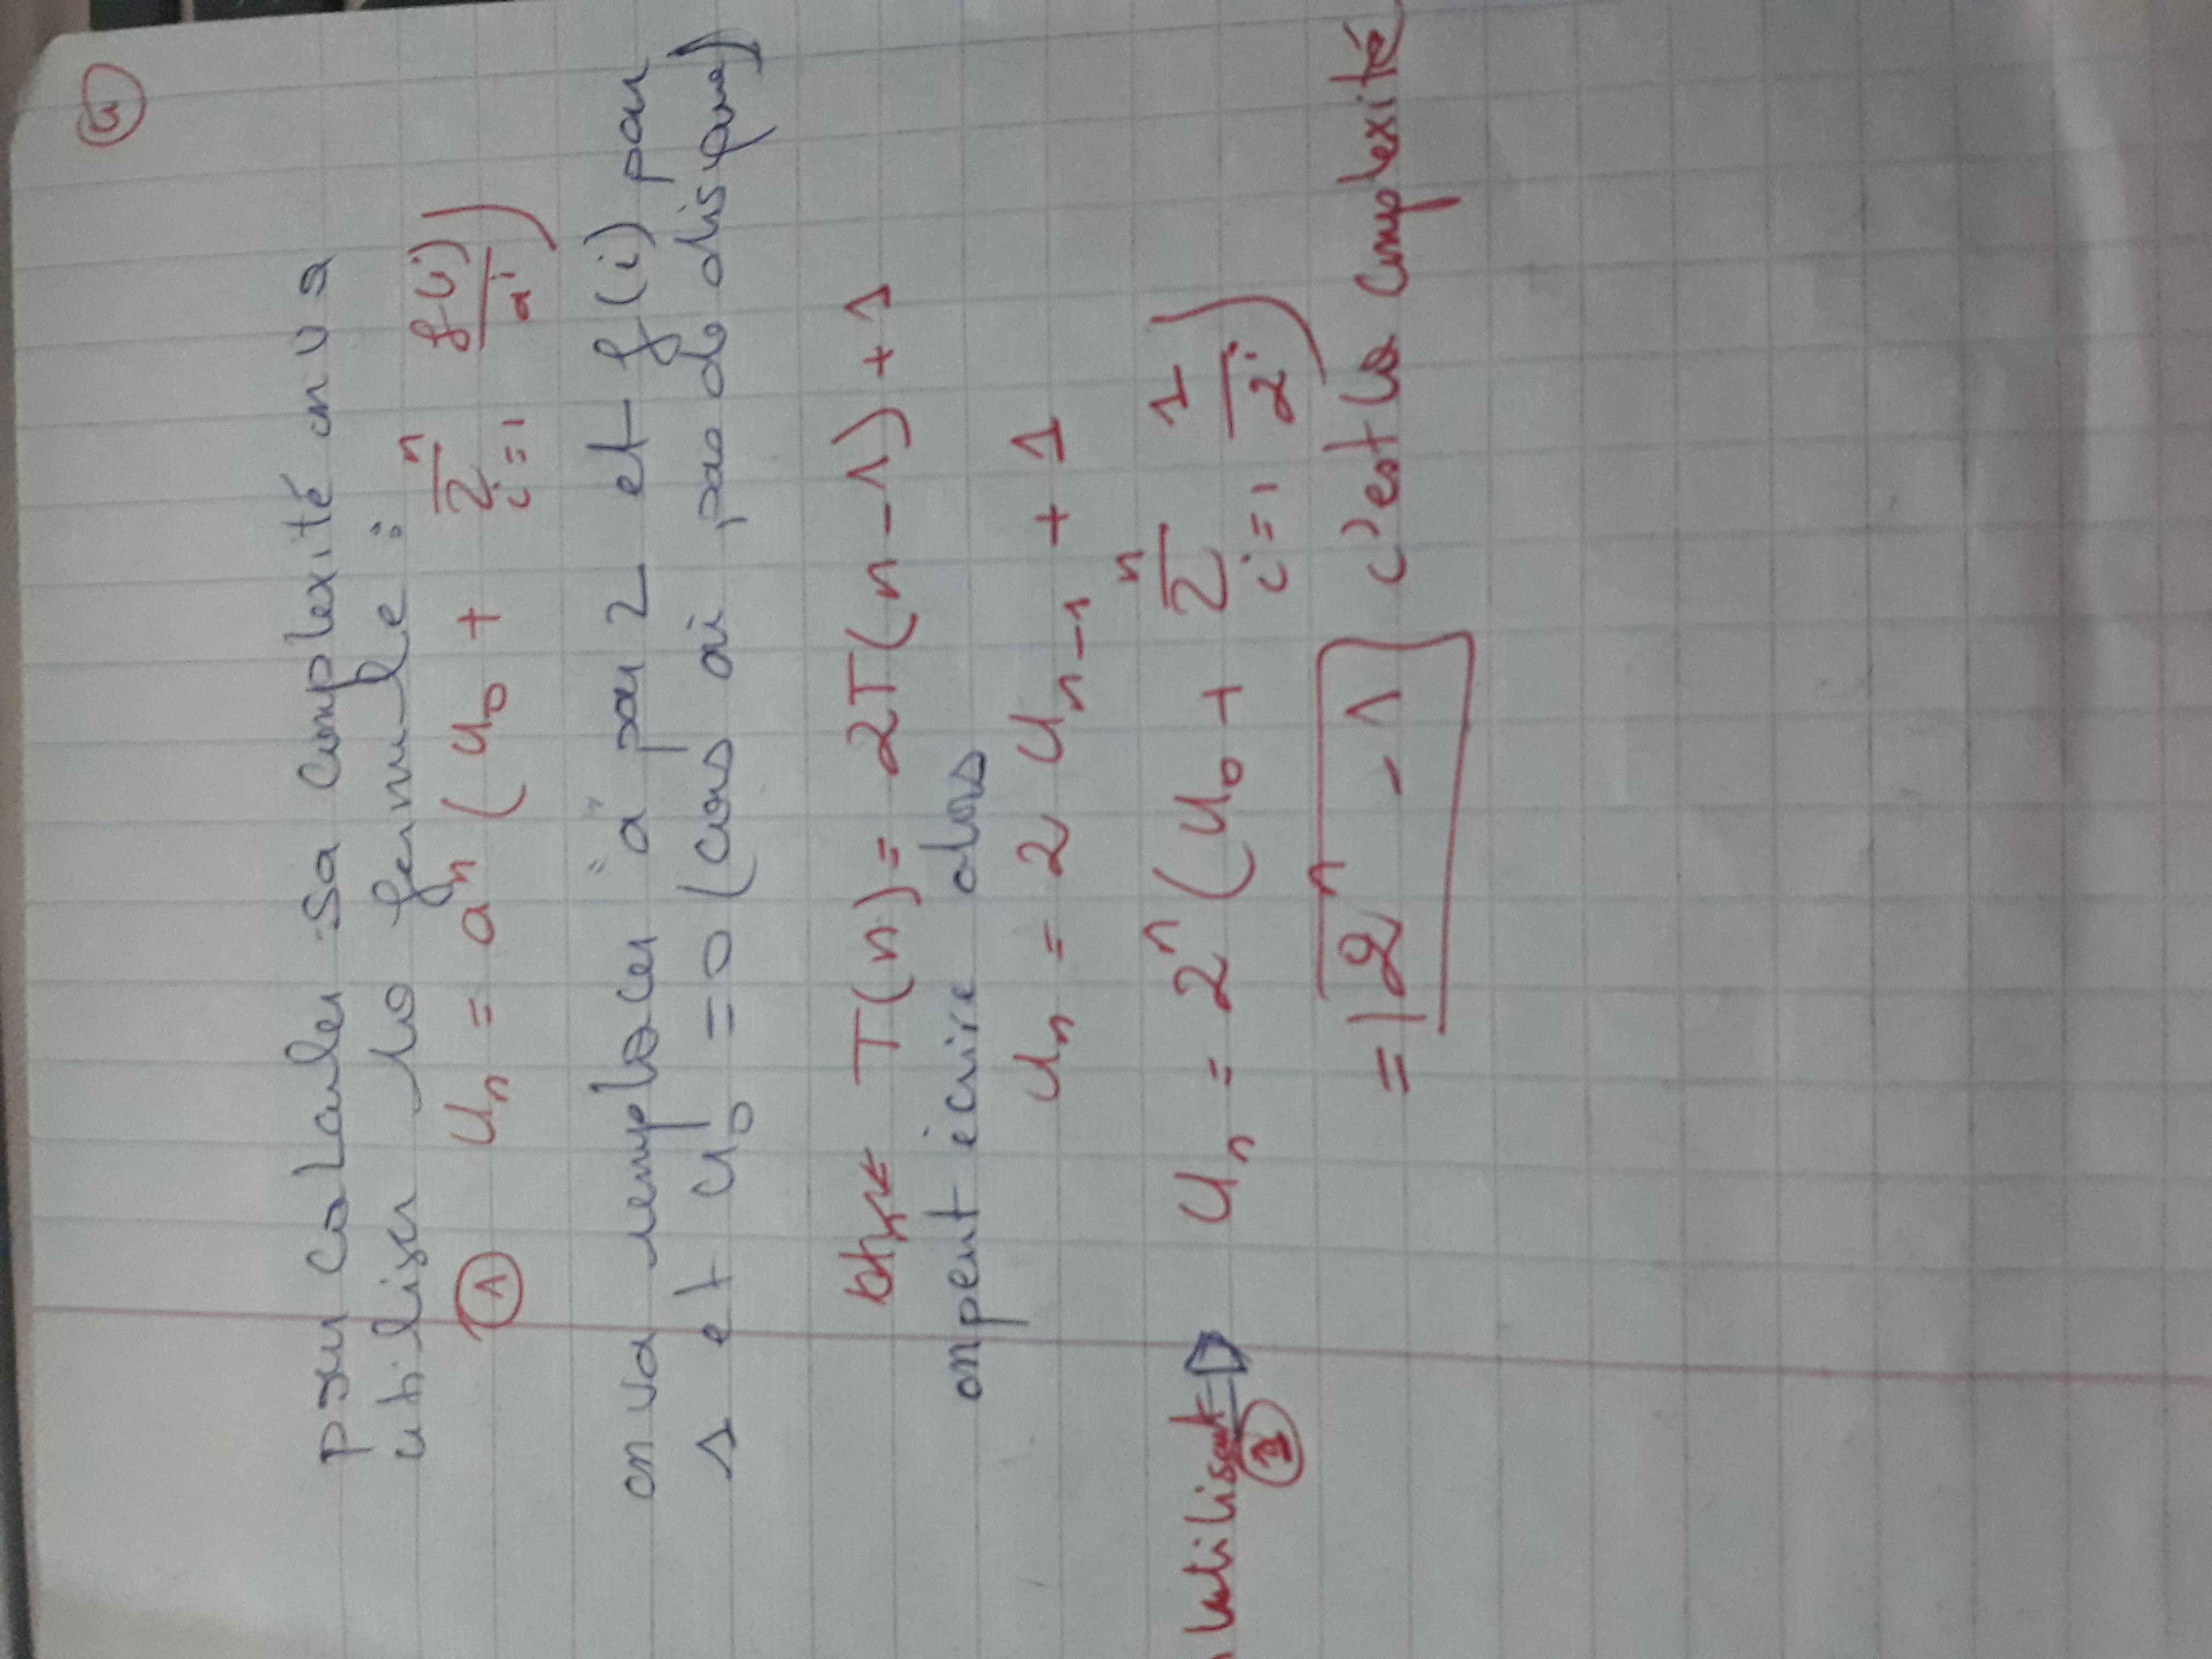 pour calculer sa complexité on va
utiliser la formule :
① Un = aⁿ ( U₀ + Σ_{i=1}^{n} f(i)/aⁱ )
on va remplacer "a" par 2 et f(i) par
1 et U₀ = 0 (cas où pas de disque)
T(n) = 2T(n-1) + 1
on peut écrire alors
Un = 2 Un-1 + 1
utilisant ① ⇒ Un = 2ⁿ ( U₀ + Σ_{i=1}^{n} 1/2ⁱ )
= 2ⁿ - 1 c'est la complexité